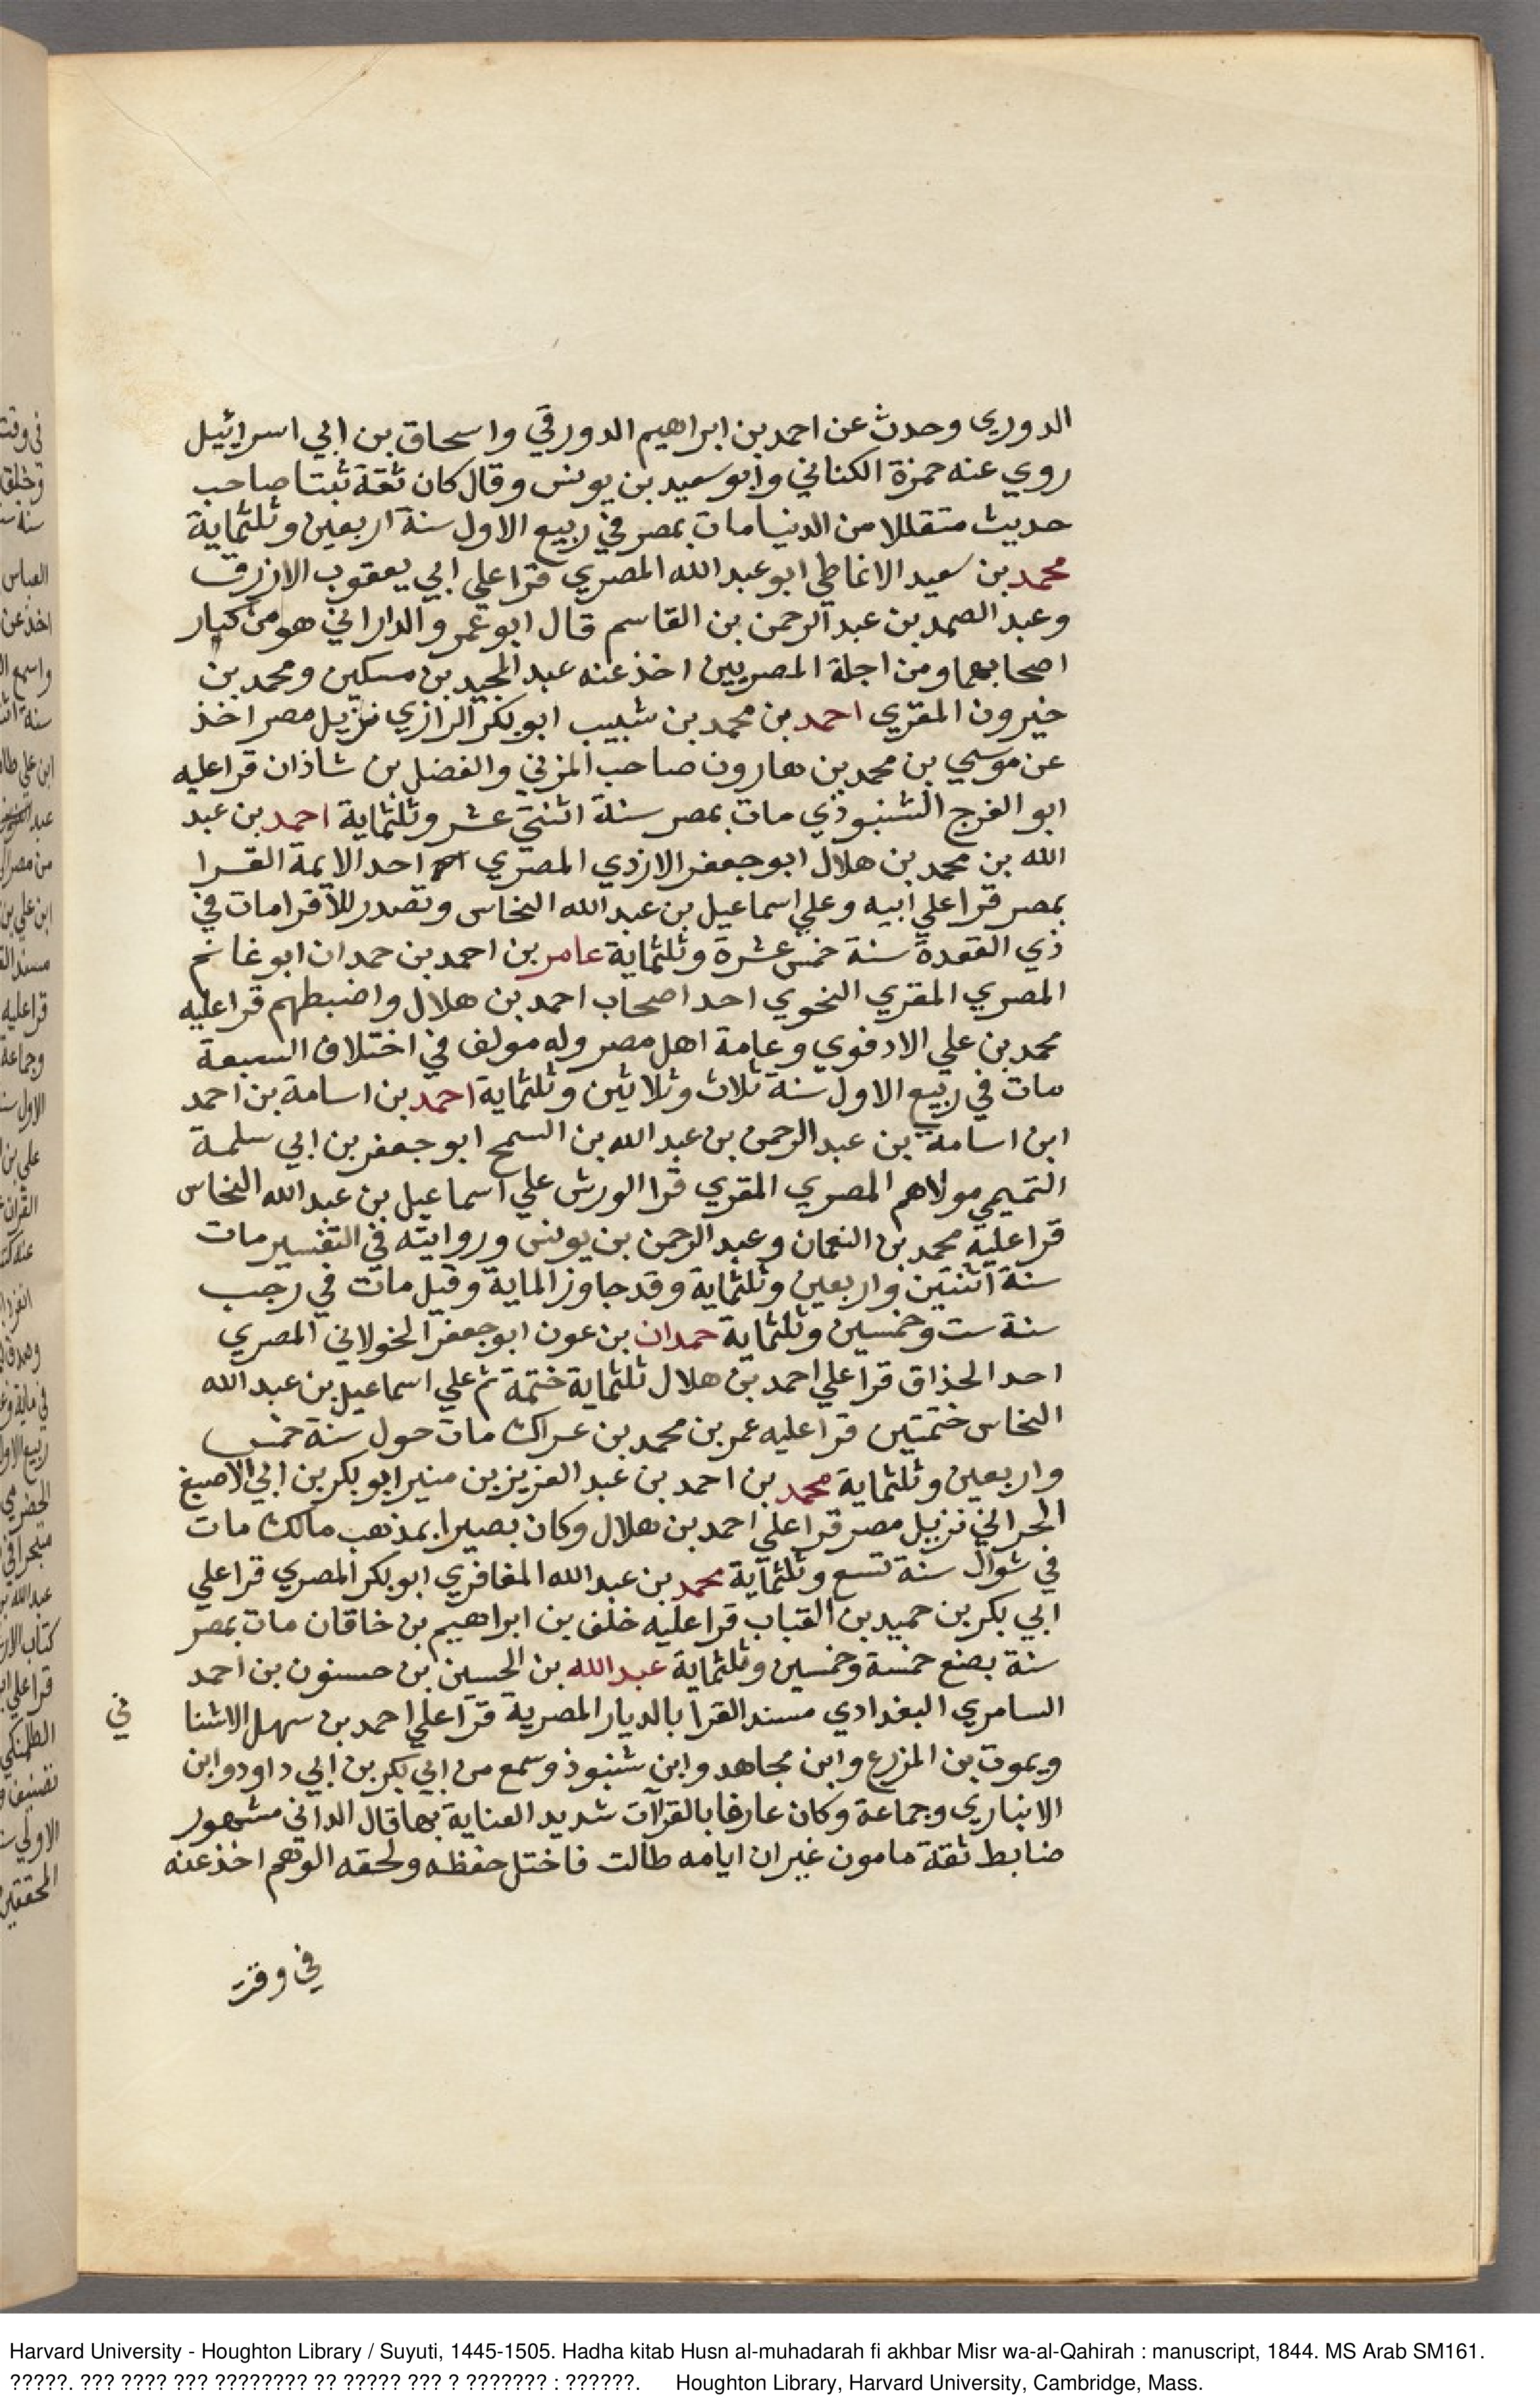 الدوري وحدث عن احمد بن ابراهيم الدورقي واسحاق بن ابي اسرائيل
روي عنه حمزة الكناني وابو سعيد بن يونس وقال كان ثقة ثبتا صاحب
حديث متقللا من الدنيا مات بمصر في ربيع الاول سنة اربعين وثلثماية
محمد بن سعيد الانماطي ابو عبد الله المصري قرا علي ابي يعقوب الازرق
وعبد الصمد بن عبد الرحمن بن القاسم قال ابو عمرو الداراني هو من كبار
اصحابهما ومن اجلة المصريين اخذ عنه عبد المجيد بن مسكين ومحمد بن
خيرون المقري احمد بن محمد بن شبيب ابو بكر الرازي نزيل مصر اخذ
عن موسي بن محمد بن هارون صاحب المزني والفضل بن شاذان قرا عليه
ابو الفرج الشنبوذي مات بمصر سنة اثنتي عشر وثلثماية احمد بن عبد
الله بن محمد بن هلال ابو جعفر الازدي المصري احد الايمة القرا
بمصر قرا علي ابيه وعلي اسماعيل بن عبد الله النخاس وتصدر للاقرا مات في
ذي القعدة سنة خمس عشرة وثلثماية عامر بن احمد بن حمدان ابو غانم
المصري المقري النحوي احد اصحاب احمد بن هلال واضبطهم قرا عليه
محمد بن علي الادفوي وعامة اهل مصر وله مولف في اختلاف السبعة
مات في ربيع الاول سنة ثلاث وثلاثين وثلثماية احمد بن اسامة بن احمد
ابن اسامة بن عبد الرحمن بن عبد الله بن السمح ابو جعفر بن ابي سلمة
التميمي مولاهم المصري المقري قرا الورش علي اسماعيل بن عبد الله النخاس
قرا عليه محمد بن النعمان وعبد الرحمن بن يونس وروايته في التفسير مات
سنة اثنتين واربعين وثلثماية وقد جاوز الماية وقيل مات في رجب
سنة ست وخمسين وثلثماية حمدان بن عون ابو جعفر الخولاني المصري
احد الحذاق قرا علي احمد بن هلال ثلثماية ختمة ثم علي اسماعيل بن عبد الله
النخاس ختمتين قرا عليه عمر بن محمد بن عراك مات حول سنة خمس
واربعين وثلثماية محمد بن احمد بن عبد العزيز بن منير ابو بكر بن ابي الاصبغ
الحراني نزيل مصر قرا علي احمد بن هلال وكان بصيرا بمذهب مالك مات
في شوال سنة تسع وثلثماية محمد بن عبد الله المغافري ابو بكر المصري قرا علي
ابي بكر بن حميد بن القباب قرا عليه خلف بن ابراهيم بن خاقان مات بمصر
سنة بضع خمسة وخمسين وثلثماية عبد الله بن الحسين بن حسنون بن احمد
السامري البغدادي مسند القرا بالديار المصرية قرا علي احمد بن سهل الاشنا
ني
ويموت بن المزرع وابن مجاهد وابن شنبوذ وسمع من ابي بكر بن ابي داود وابن
الانباري وجماعة وكان عارفا بالقرآت شديد العناية بها قال الداني مشهور
ضابط ثقة مامون غير ان ايامه طالت فاختل حفظه ولحقه الوهم اخذ عنه
في وقت
Harvard University - Houghton Library / Suyuti, 1445-1505. Hadha kitab Husn al-muhadarah fi akhbar Misr wa-al-Qahirah : manuscript, 1844. MS Arab SM161.
?????. ??? ???? ??? ???????? ?? ????? ??? ? ??????? : ??????. Houghton Library, Harvard University, Cambridge, Mass.